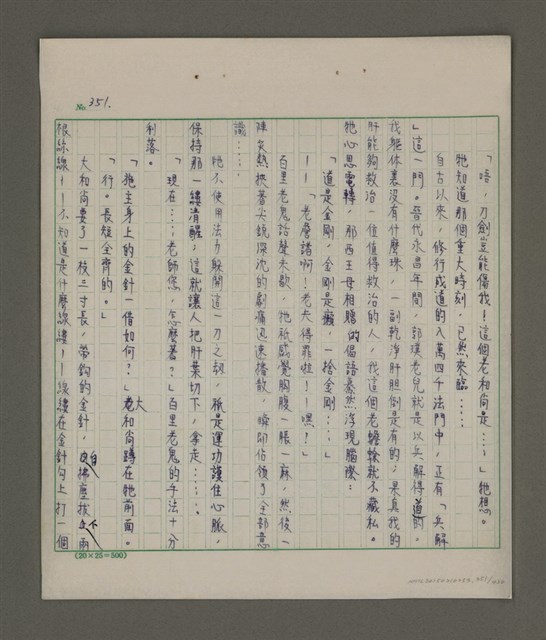 No. 351.
「唔，刀劍豈能傷我！這個老和尚是……」牠想。
牠知道那個重大時刻，已然來臨……
自古以來，修行成道的八萬四千法門中，正有「兵解
」這一門。晉代永昌年間，郭璞老兒就是以兵解得道的。
我軀体裏沒有什麼珠，一副乾淨肝胆倒是有的；果真我的
肝能夠救治一值值得救治的人，我這個老蟾蜍就不藏私。
牠心思電轉，那西王母相贈的偈語豪然浮現腦際：
「道是金剛，金剛是癡，一拾金剛……」
——「老詹諸啊！老夫得罪啦！——嘿！」
百里老鬼話聲未歇，牠祇感覺胸腹一脹一麻，然後一
陣炎熱挾著尖銳深沈的劇痛迅速擴散，瞬間佔領了全部意
識……
牠不使用法力躲開這一刀之刼，祇是運功護住心脈，
保持那一縷清醒；這就讓人把肝葉切下，拿走……。
「現在……老師您，怎麼著？」百里老鬼的手法十分
利落。
「施主身上的金針一借如何？」老大和尚蹲在牠前面。
「行。長短全齊的。」
大和尚要了一枝三寸長，帶鈎的金針，自拂塵拔下兩
根絲線——不知道是什麼線縷——線縷在金針勾上打一個
(20×25=500)